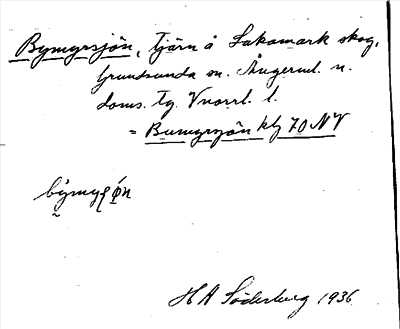 Bymyrsjön, tjärn å Såkamark skog,
Grundsunda sn. Ångerml. n.
doms. tg. Vnorrl. l.
= Bumyrsjön kbl 70 NV
Söderberg 1936
H A